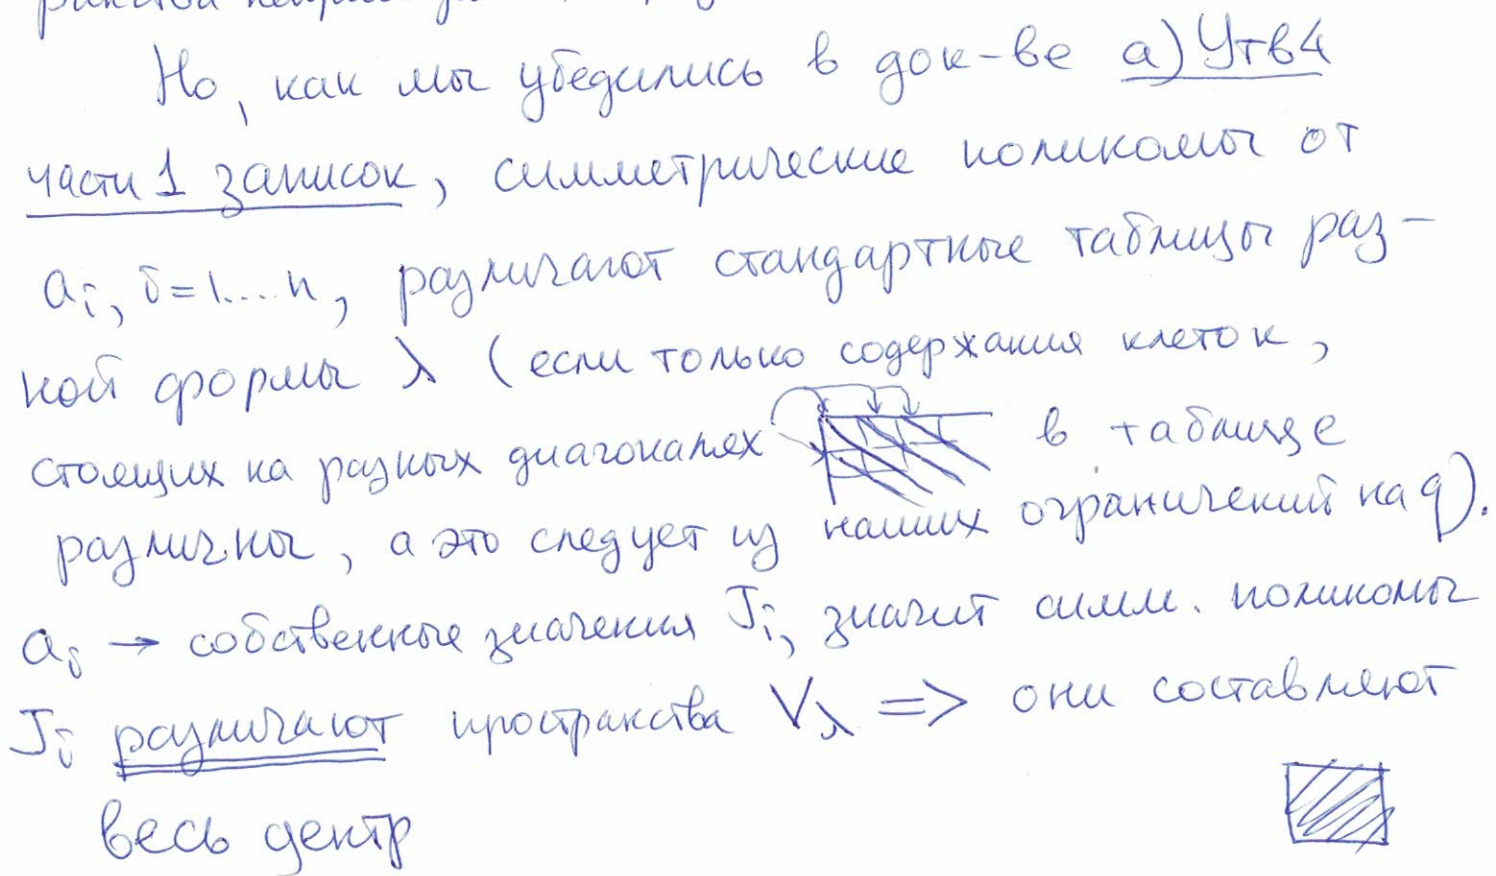 Но, как мы убедились в док-ве а) Утв4
части 1 записок, симметрические полиномы от
aᵢ, i=1....n, различают стандартные таблицы раз-
ной формы λ (если только содержания клеток,
стоящих на разных диагоналях в таблице
различны, а это следует из наших ограничений на q).
aᵢ → собственные значения Jᵢ, значит симм. полиномы
Jᵢ различают пространства V_λ => они составляют
весь центр